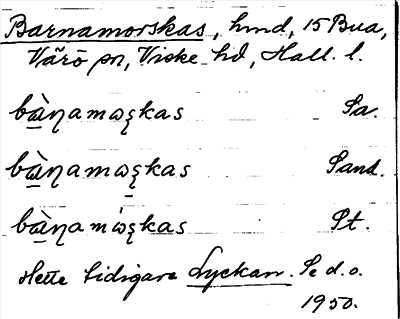 Barnamorskas, hmd, 15 Bua,
Värö sn, Viske hd, Hall. l.
bὰ̱ŋamωʂkas Sa.
bὰ̱ŋamωʂkas Sand.
bὰ̱ŋamώʂkas St.
Hette tidigare Lyckan. Se d.o.
1950.